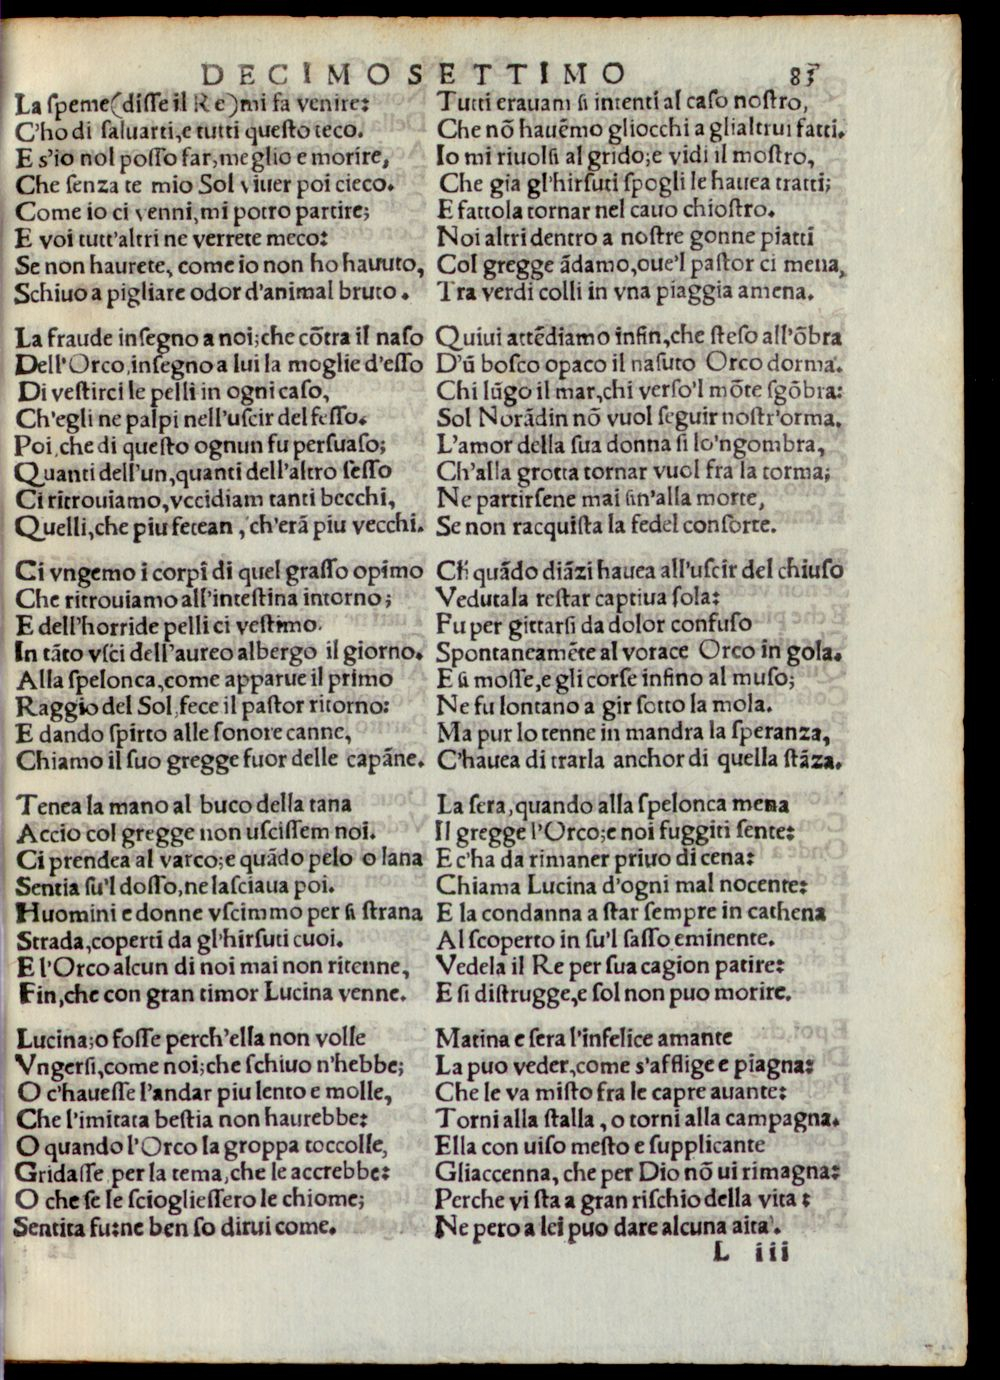 DECIMOSETTIMO 83
La speme(disse il Re)mi fa venire:
C'ho di saluarti,e tutti questo teco.
E s'io nol posso far,meglio e morire,
Che senza te mio Sol viuer poi cieco.
Come io ci venni,mi potro partire;
E voi tutt'altri ne verrete meco:
Se non haurete, come io non ho hauuto,
Schiuo a pigliare odor d'animal bruto.
La fraude insegno a noi;che cõtra il naso
Dell'Orco,insegno a lui la moglie d'esso
Di vestirci le pelli in ogni caso,
Ch'egli ne palpi nell'uscir del fesso.
Poi,che di questo ognun fu persuaso;
Quanti dell'un,quanti dell'altro sesso
Ci ritrouiamo,vccidiam tanti becchi,
Quelli,che piu fetean, ch'erã piu vecchi.
Ci vngemo i corpi di quel grasso opimo
Che ritrouiamo all'intestina intorno;
E dell'horride pelli ci vestimo.
In tãto vsci dell'aureo albergo il giorno.
Alla spelonca,come apparue il primo
Raggio del Sol,fece il pastor ritorno:
E dando spirto alle sonore canne,
Chiamo il suo gregge fuor delle capãne.
Tenea la mano al buco della tana
Accio col gregge non uscissem noi.
Ci prendea al varco;e quãdo pelo o lana
Sentia su'l dosso,ne lasciaua poi.
Huomini e donne vscimmo per si strana
Strada,coperti da gl'hirsuti cuoi.
E l'Orco alcun di noi mai non ritenne,
Fin,che con gran timor Lucina venne.
Lucina;o fosse perch'ella non volle
Vngersi,come noi;che schiuo n'hebbe;
O c'hauesse l'andar piu lento e molle,
Che l'imitata bestia non haurebbe:
O quando l'Orco la groppa toccolle,
Gridasse per la tema,che le accrebbe:
O che se le sciogliessero le chiome;
Sentita fu:ne ben so dirui come.
Tutti erauam si intenti al caso nostro,
Che nõ hauẽmo gliocchi a glialtrui fatti.
Io mi riuolsi al grido;e vidi il mostro,
Che gia gl'hirsuti spogli le hauea tratti;
E fattola tornar nel cauo chiostro.
Noi altri dentro a nostre gonne piatti
Col gregge ãdamo,oue'l pastor ci mena,
Tra verdi colli in vna piaggia amena.
Quiui attẽdiamo infin,che steso all'õbra
D'ũ bosco opaco il nasuto Orco dorma.
Chi lũgo il mar,chi verso'l mõte sgõbra:
Sol Norãdin nõ vuol seguir nostr'orma.
L'amor della sua donna si lo'ngombra,
Ch'alla grotta tornar vuol fra la torma;
Ne partirsene mai sin'alla morte,
Se non racquista la fedel consorte.
Ch quãdo diãzi hauea all'uscir del chiuso
Vedutala restar captiua sola:
Fu per gittarsi da dolor confuso
Spontaneamẽte al vorace Orco in gola.
E si mosse,e gli corse infino al muso;
Ne fu lontano a gir sotto la mola.
Ma pur lo tenne in mandra la speranza,
C'hauea di trarla anchor di quella stãza.
La sera,quando alla spelonca mena
Il gregge l'Orco;e noi fuggiti sente:
E c'ha da rimaner priuo di cena:
Chiama Lucina d'ogni mal nocente:
E la condanna a star sempre in cathena
Al scoperto in su'l sasso eminente.
Vedela il Re per sua cagion patire:
E si distrugge,e sol non puo morire.
Matina e sera l'infelice amante
La puo veder,come s'afflige e piagna:
Che le va misto fra le capre auante:
Torni alla stalla, o torni alla campagna.
Ella con uiso mesto e supplicante
Gliaccenna, che per Dio nõ ui rimagna:
Perche vi sta a gran rischio della vita:
Ne pero a lei puo dare alcuna aita.
L iii